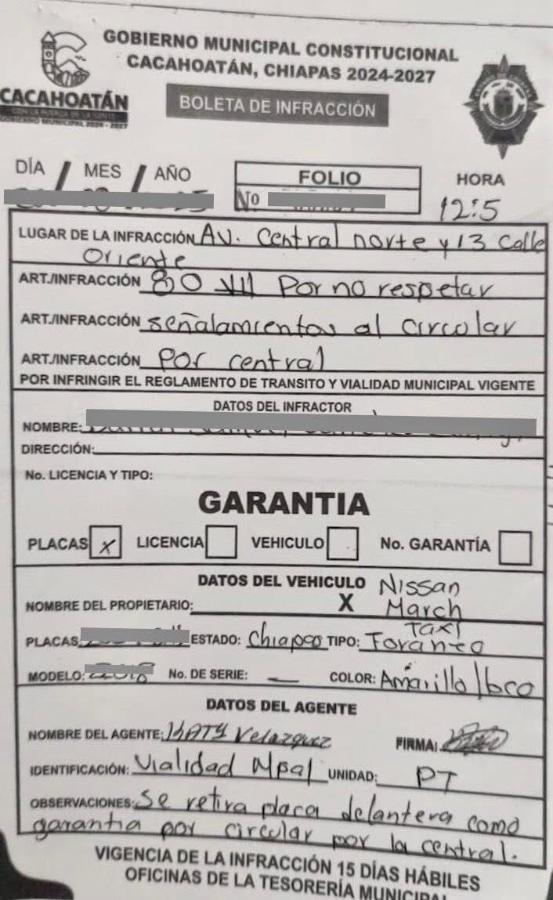 GOBIERNO MUNICIPAL CONSTITUCIONAL
CACAHOATÁN, CHIAPAS 2024-2027
CACAHOATÁN
CON LA FUERZA DE LA GENTE
GOBIERNO MUNICIPAL 2024 - 2027
BOLETA DE INFRACCIÓN
DÍA / MES / AÑO
FOLIO
No
HORA
12:5
LUGAR DE LA INFRACCIÓN Av. Central norte y 13 Calle
Oriente
ART./INFRACCIÓN 80 VII Por no respetar
ART./INFRACCIÓN señalamientos al circular
ART./INFRACCIÓN por central
POR INFRINGIR EL REGLAMENTO DE TRANSITO Y VIALIDAD MUNICIPAL VIGENTE
DATOS DEL INFRACTOR
NOMBRE:
DIRECCIÓN:
No. LICENCIA Y TIPO:
GARANTIA
PLACAS X LICENCIA VEHICULO No. GARANTÍA
DATOS DEL VEHICULO Nissan
NOMBRE DEL PROPIETARIO: X March
Taxi
PLACAS ESTADO: Chiapas TIPO: Foraneo
MODELO: No. DE SERIE: — COLOR: Amarillo/bco
DATOS DEL AGENTE
NOMBRE DEL AGENTE: KATY Velazquez FIRMA:
IDENTIFICACIÓN: Vialidad Mpal UNIDAD: PT
OBSERVACIONES: Se retira placa delantera como
garantia por circular por la central.
VIGENCIA DE LA INFRACCIÓN 15 DÍAS HÁBILES
OFICINAS DE LA TESORERÍA MUNICIPAL